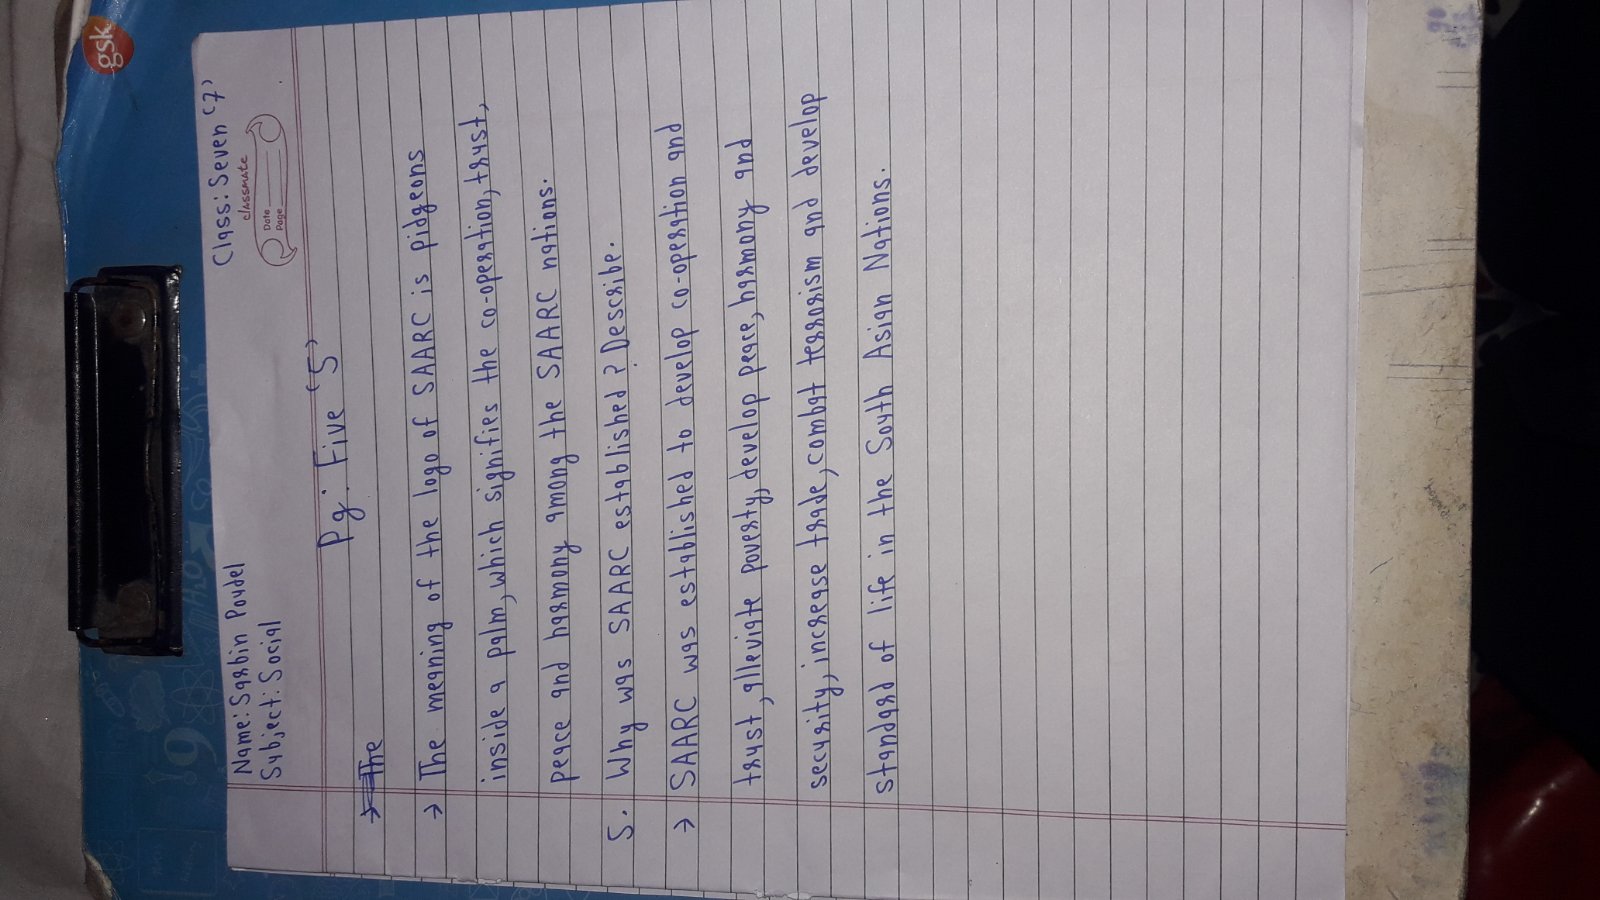 gsk
Name: Sarbin Poudel
Class: Seven '7'
Subject: Social
classmate
Date
Page
Pg: Five '5'
→ The
→ The meaning of the logo of SAARC is pidgeons
inside a palm, which signifies the co-operation, trust,
peace and harmony among the SAARC nations.
5. Why was SAARC established? Describe.
→ SAARC was established to develop co-operation and
trust, alleviate poverty, develop peace, harmony and
security, increase trade, combat terrorism and develop
standard of life in the South Asian Nations.